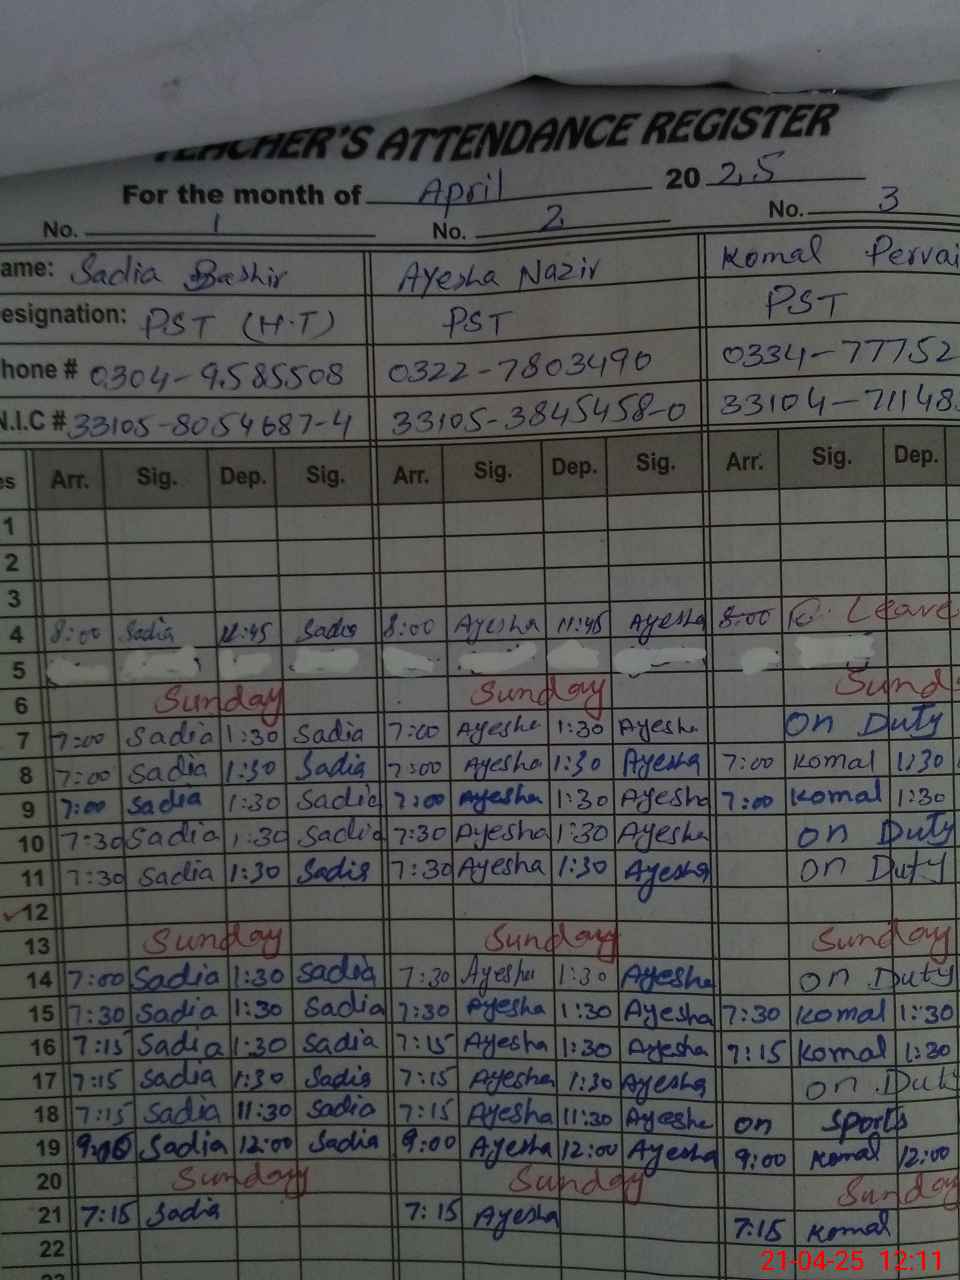 TEACHER'S ATTENDANCE REGISTER
For the month of April 2025
No. 1 No. 2 No. 3
ame: Sadia Bashir Ayesha Nazir Komal Pervai
esignation: PST (H.T) PST PST
hone # 0304-9585508 0322-7803490 0334-77752
N.I.C # 33105-8054687-4 33105-3845458-0 33104-71148
es Arr. Sig. Dep. Sig. Arr. Sig. Dep. Sig. Arr. Sig. Dep.
1
2
3
4 8:00 Sadia 11:45 Sadia 8:00 Ayesha 11:45 Ayesha 8:00 Leave
5
6 Sunday Sunday Sund
7 7:00 Sadia 1:30 Sadia 7:00 Ayesha 1:30 Ayesha On Duty
8 7:00 Sadia 1:30 Sadia 7:00 Ayesha 1:30 Ayesha 7:00 Komal 1:30
9 7:00 Sadia 1:30 Sadia 7:00 Ayesha 1:30 Ayesha 7:00 Komal 1:30
10 7:30 Sadia 1:30 Sadia 7:30 Ayesha 1:30 Ayesha on Duty
11 7:30 Sadia 1:30 Sadia 7:30 Ayesha 1:30 Ayesha on Duty
12
13 Sunday Sunday Sunday
14 7:00 Sadia 1:30 Sadia 7:30 Ayesha 1:30 Ayesha on Duty
15 7:30 Sadia 1:30 Sadia 7:30 Ayesha 1:30 Ayesha 7:30 Komal 1:30
16 7:15 Sadia 1:30 Sadia 7:15 Ayesha 1:30 Ayesha 7:15 Komal 1:30
17 7:15 Sadia 1:30 Sadia 7:15 Ayesha 1:30 Ayesha on Duty
18 7:15 Sadia 11:30 Sadia 7:15 Ayesha 11:30 Ayesha on Sports
19 9:00 Sadia 12:00 Sadia 9:00 Ayesha 12:00 Ayesha 9:00 Komal 12:00
20 Sunday Sunday Sunday
21 7:15 Sadia 7:15 Ayesha 7:15 Komal
22
21-04-25 12:11